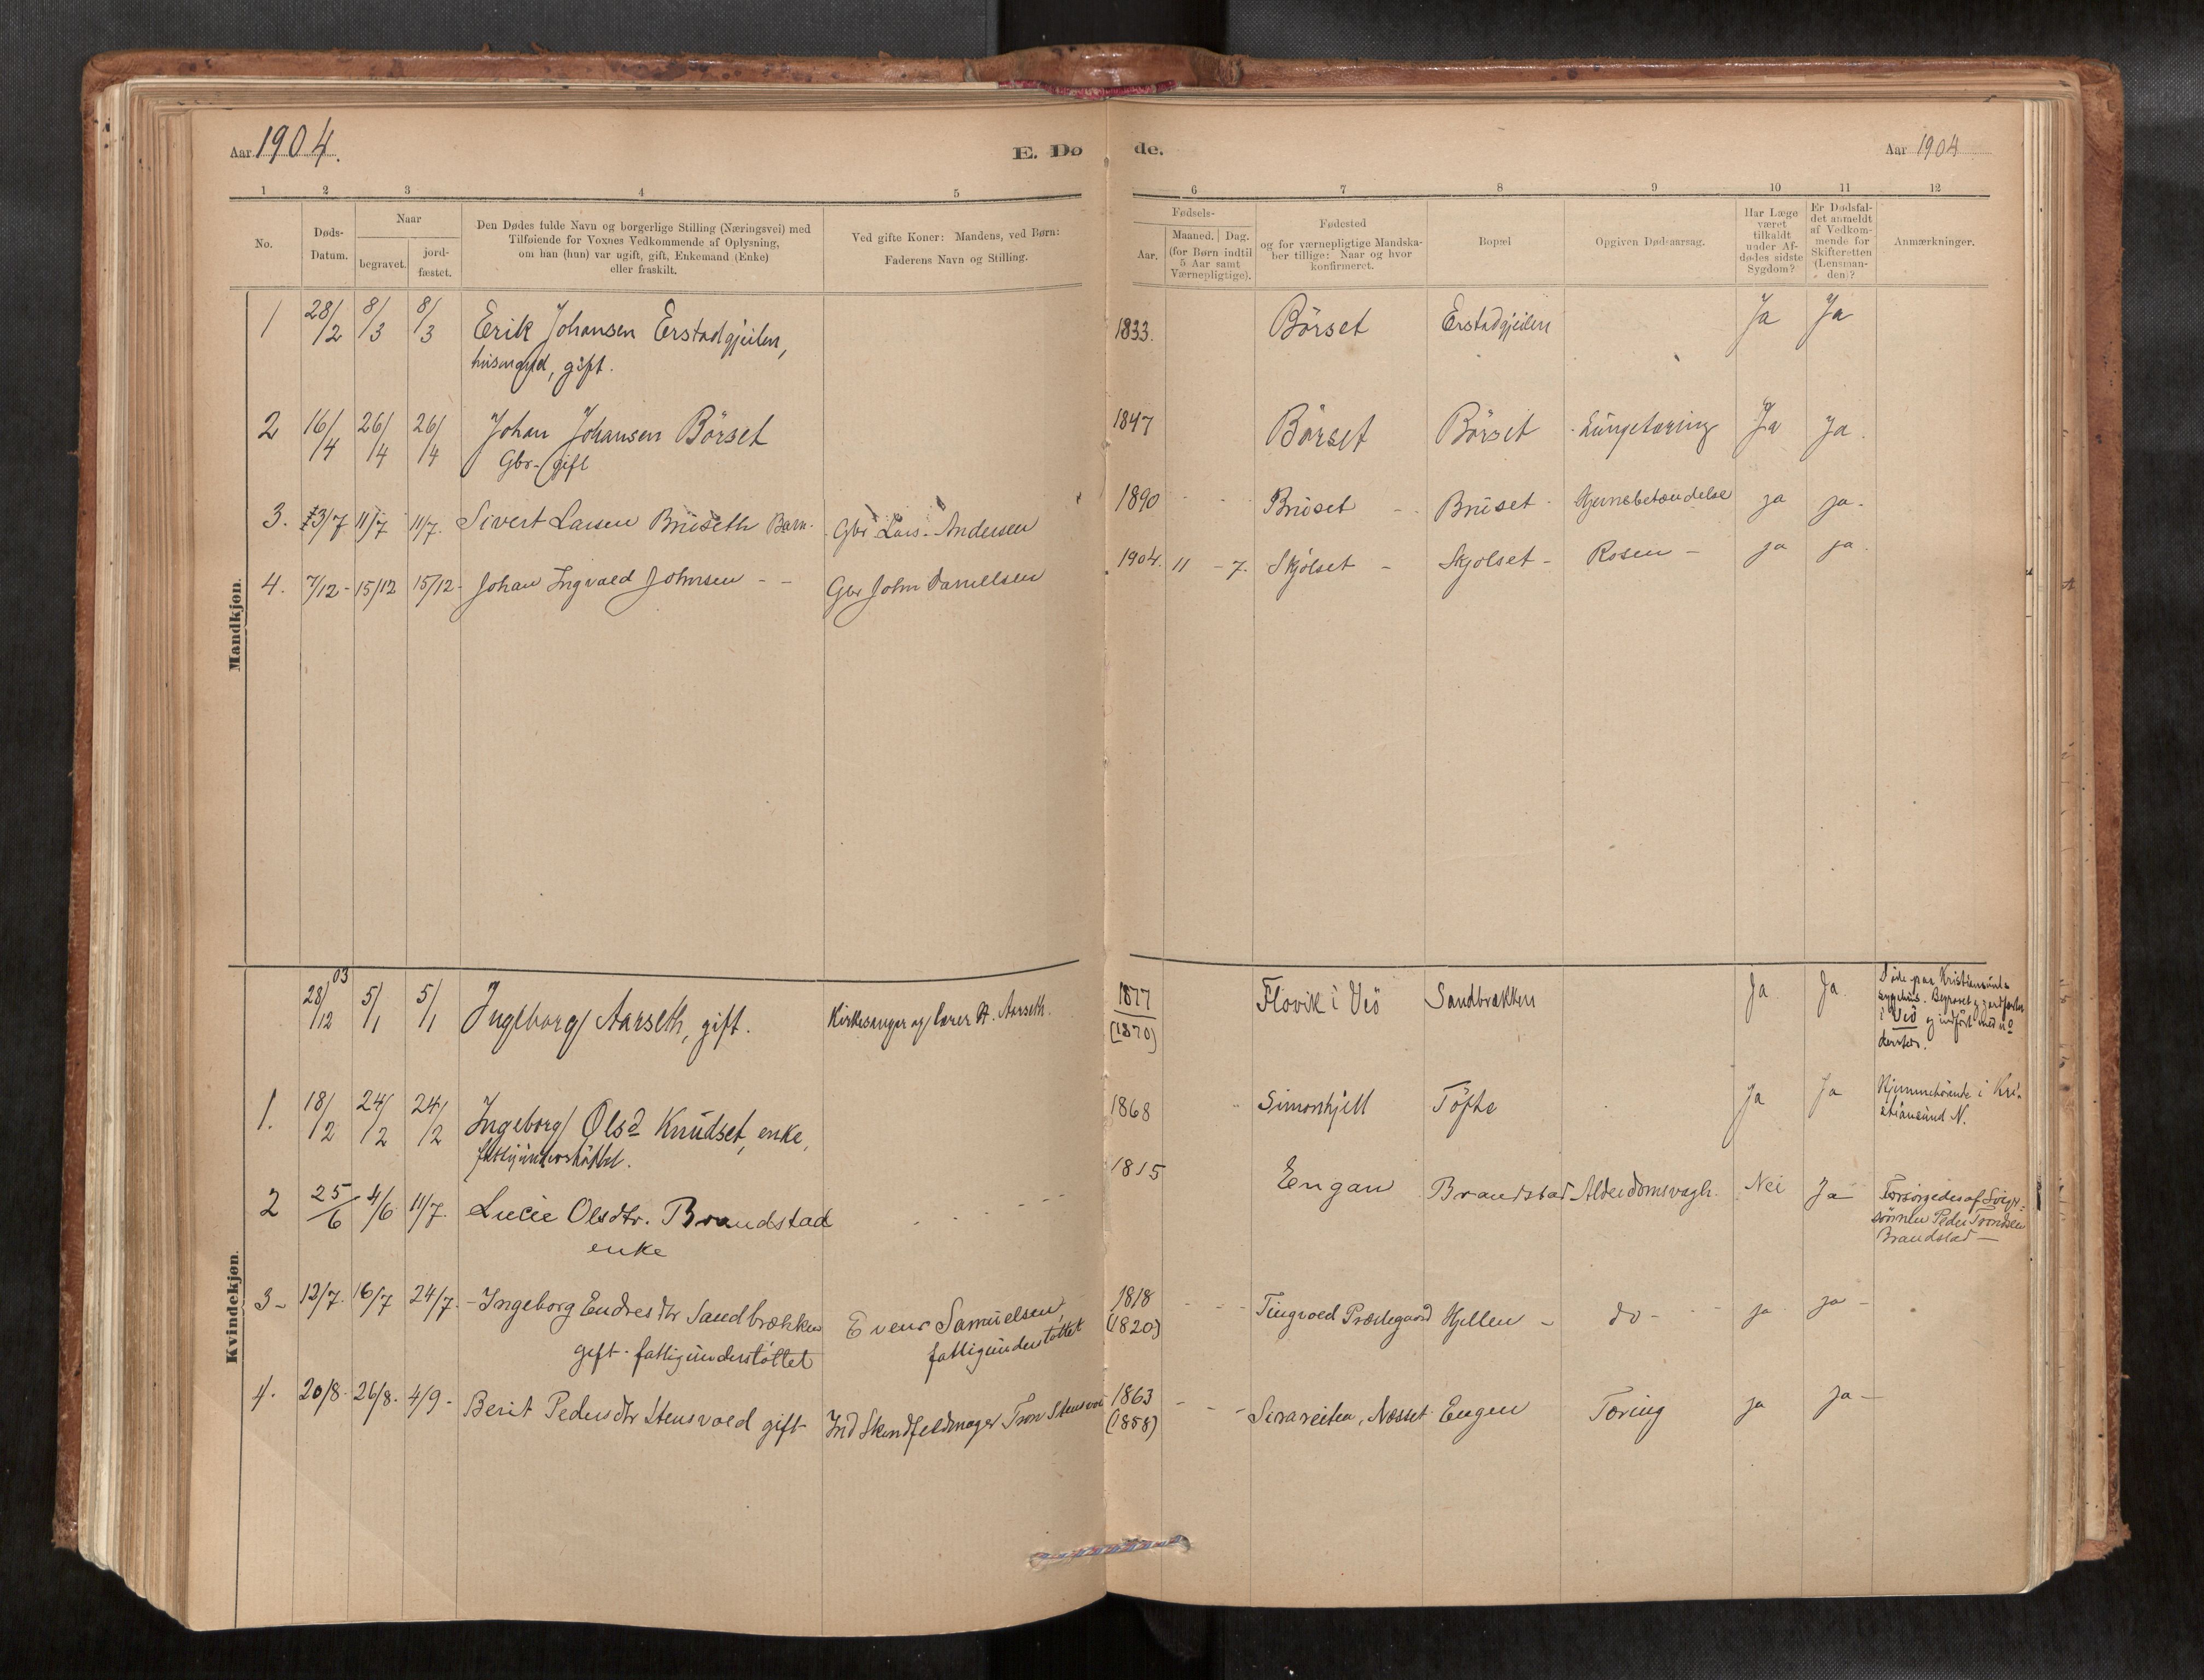 Aar 1904.
E. Døde.
Aar 1904
1 2 3 4 5 6 7 8 9 10 11 12
No.
Døds-Datum.
Naar
begravet.
jord-fæstet.
Den Dødes fulde Navn og borgerlige Stilling (Næringsvei) med
Tilføiende for Voxnes Vedkommende af Oplysning,
om han (hun) var ugift, gift, Enkemand (Enke)
eller fraskilt.
Ved gifte Koner: Mandens, ved Børn:
Faderens Navn og Stilling.
Fødsels-
Aar.
Maaned. Dag.
(for Børn indtil
5 Aar samt
Værnepligtige).
Fødested
og for værnepligtige Mandska-
ber tillige: Naar og hvor
konfirmeret.
Bopæl
Opgiven Dødsaarsag.
Har Læge
været
tilkaldt
under Af-
dødes sidste
Sygdom?
Er Dødsfal-
det anmeldt
af Vedkom-
mende for
Skifteretten
(Lensman-
den)?
Anmærkninger.
Mandkjøn.
1 28/2 8/3 8/3 Erik Johansen Erstadgjeilen, 1833. Börset Erstadgjeilen Ja Ja
gift.
2 16/4 26/4 26/4 Johan Johansen Börset 1847 Börset Börset Lungetæring Ja Ja.
Gbr. gift
3. 3/7 11/7 11/7. Sivert Larsen Bruseth Barn. Gbr Lars Andersen 1890 Bruset Bruset Hjernebetændelse ja ja.
4. 7/12 15/12 15/12 Johan Ingvald Johnsen Gbr John Danielsen 1904. 11 - 7. Skjølset Skjølset Rosen ja ja.
Kvindekjøn.
28/12 03 5/1 5/1 Ingeborg Aarseth, gift. Kirkesanger og lærer A. Aarseth. 1877 (1870) Flovik i Veö Sandbrækken Ja Ja Döde paa Kristiansunds
sygehus. Begravet og jordfæstet
i Veö og indfört med no
dersteds.
1. 18/2 24/2 24/2 Ingeborg Olsd Knudset, enke, 1868 Simonhjell Töfte Ja Ja Hjemmehörende i Kri-
stiansund N.
fattigunderstöttet.
2 25/6 4/6 11/7. Lucie Olsdtr. Brandstad 1815 Engan Brandstad Alderdomsvagh. Nei Ja Forsörgedes af Svigersönnen Peder Trondsen
Brandstad
enke
3 12/7. 16/7 24/7. Ingeborg Endresdtr Sandbrækken Evens Samuelsen 1818 (1820) Tingvold Præstegaard Hjellen do ja ja
gift - fattigunderstöttet fattigunderstöttet
4. 20/8. 26/8. 4/9. Berit Pedersdtr Stensvold gift Ind Skindfeldmager Tron Stensvold 1863 (1858) Næsset Engen Tæring ja ja